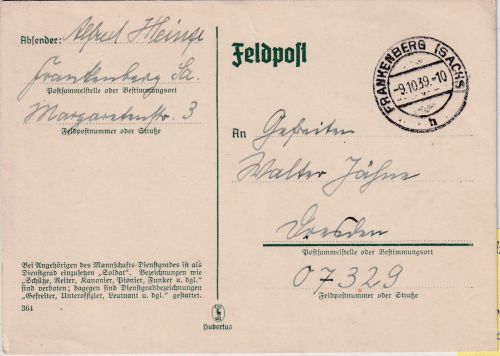 Absender: Alfred Heinze
Frankenberg Sa.
Postsammelstelle oder Bestimmungsort
Margaretenstr. 3
Feldpostnummer oder Straße
Bei Angehörigen des Mannschafts-Dienstgrades ist als
Dienstgrad einzusetzen „Soldat". Bezeichnungen wie
„Schütze, Reiter, Kanonier, Pionier, Funker u. dgl."
sind verboten; dagegen sind Dienstgradbezeichnungen
„Gefreiter, Unteroffizier, Leutnant u. dgl." gestattet.
364
Hubertus
Feldpost
FRANKENBERG (SACHS)
-9.10.39.-10
h
An Gefreiten
Walter Jähne
Dresden
Postsammelstelle oder Bestimmungsort
07329
Feldpostnummer oder Straße